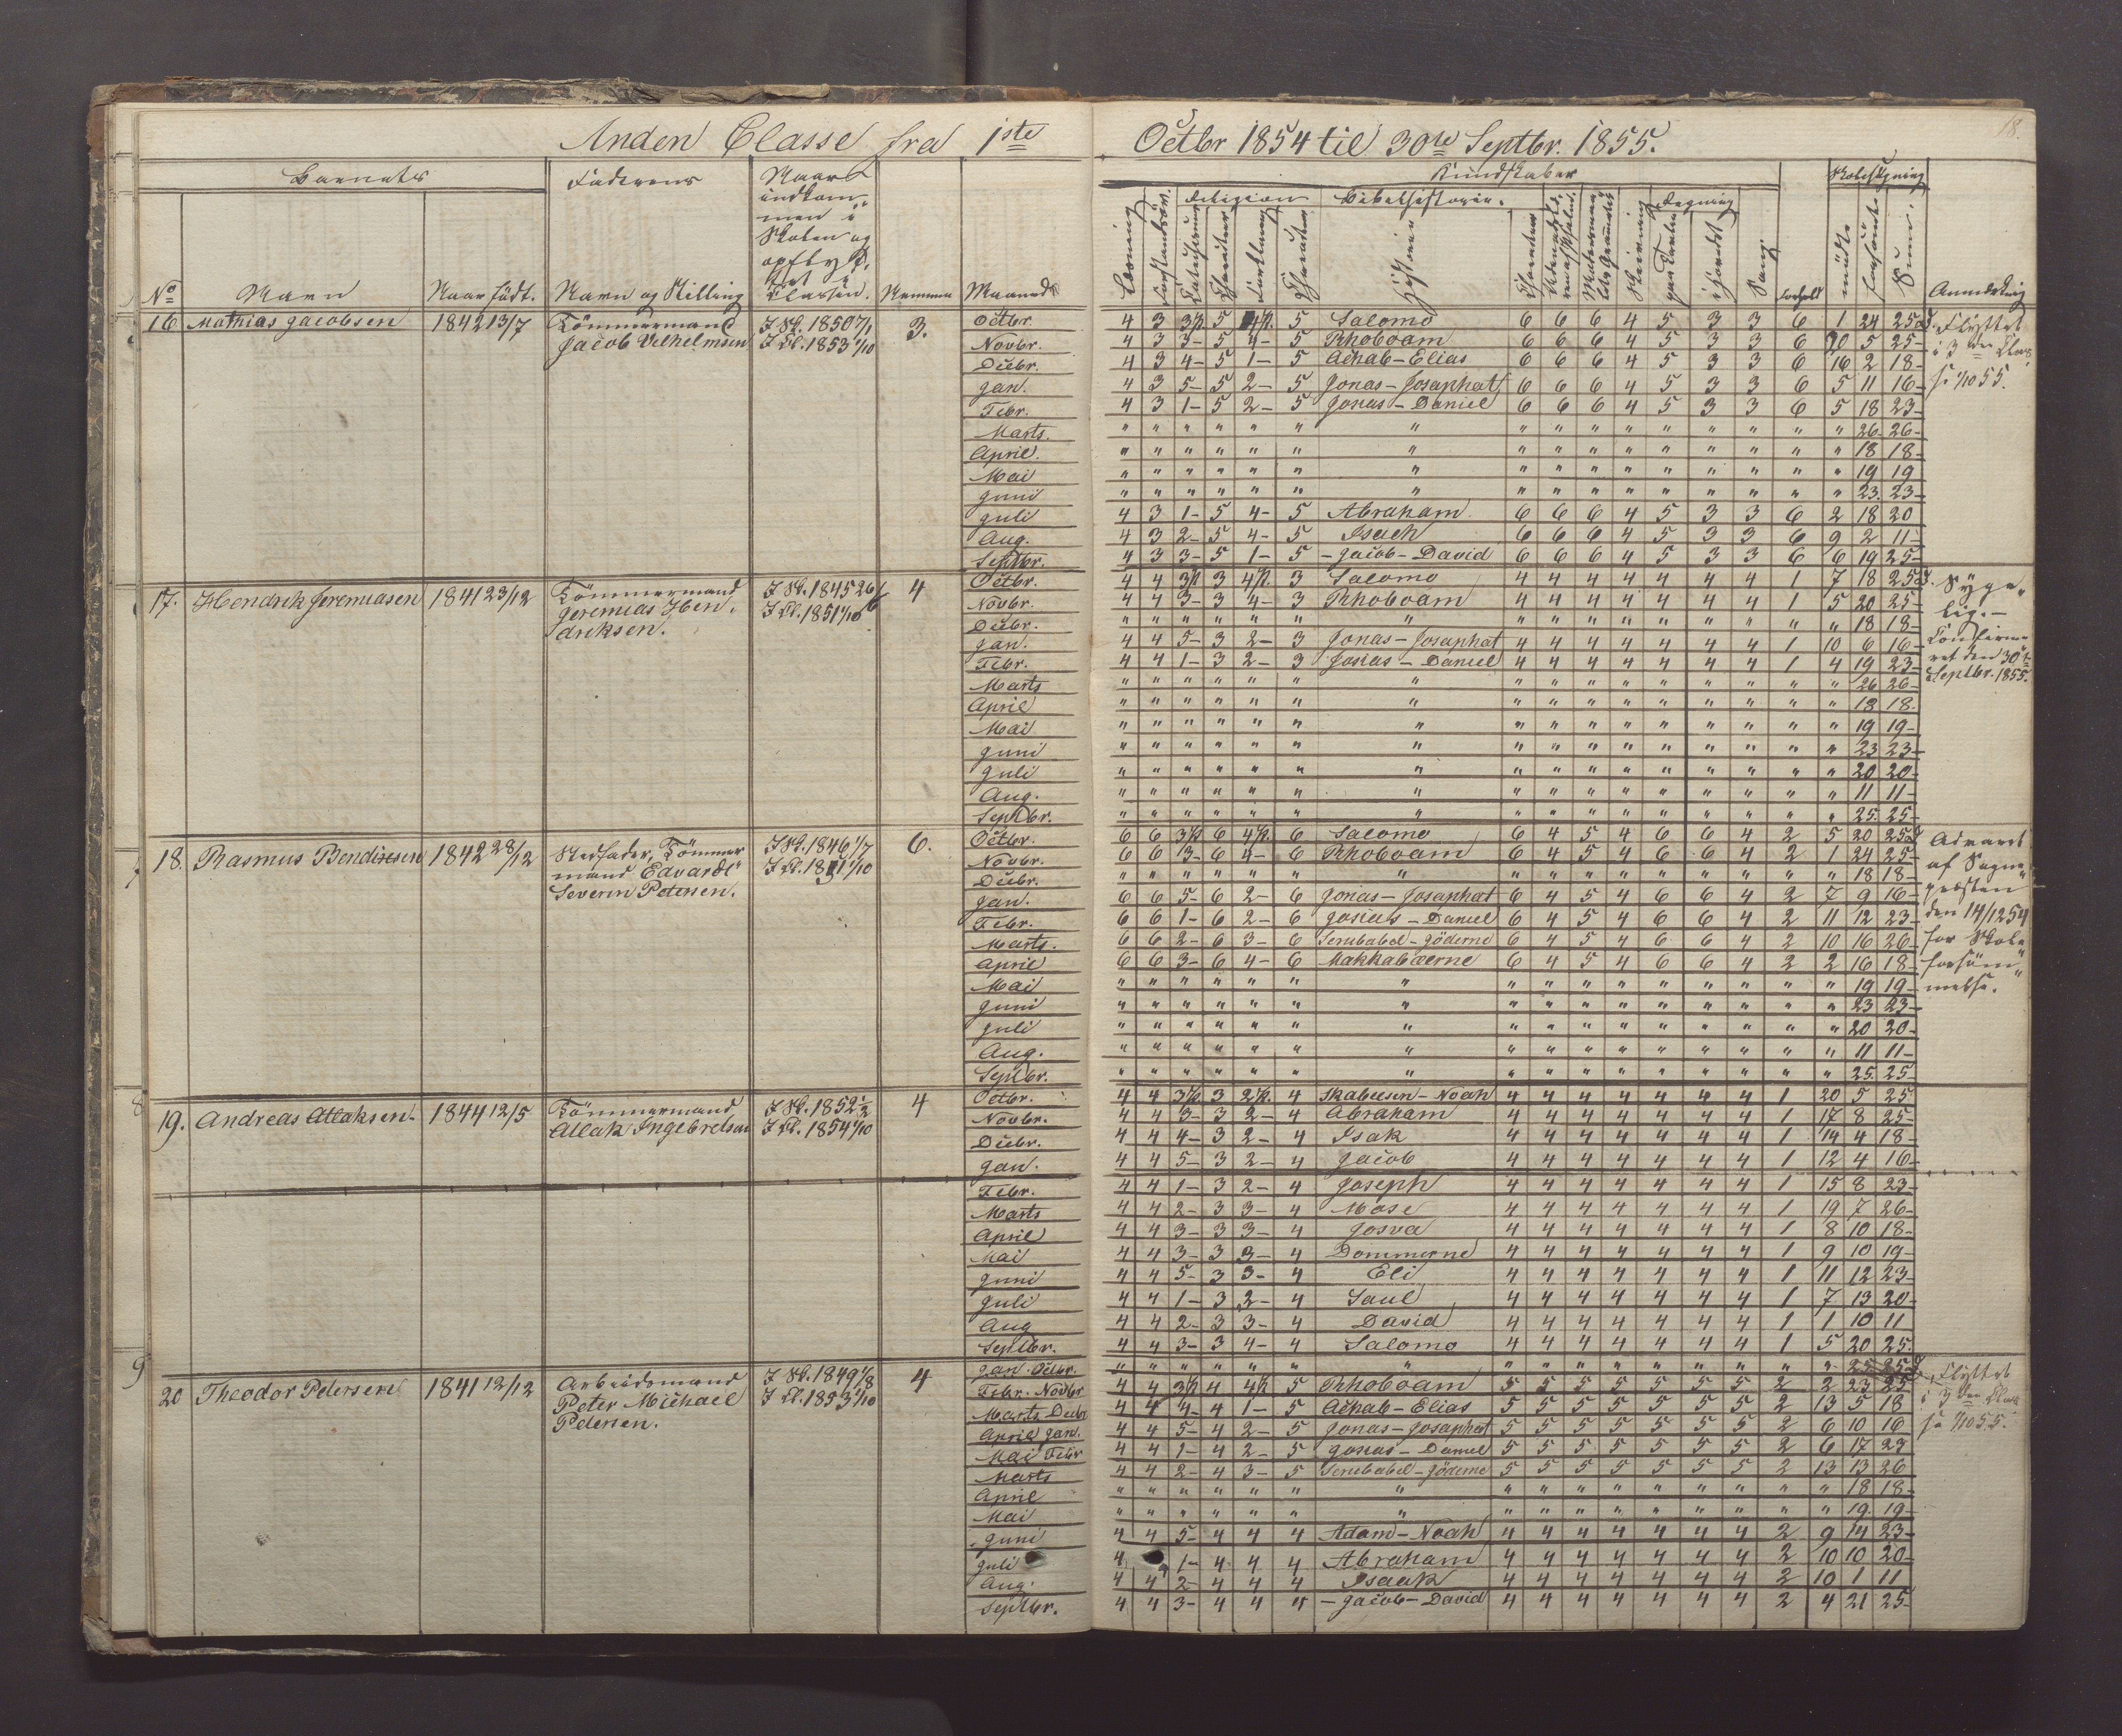 18.
Anden Classe fra 1ste Octbr 1854 til 30te Septbr. 1855.
Barnets Faderens Naar indkom-
men i
Skolen og
opflyt-
tet i
Classen. Kundskaber Skolesøgning
Religion Bibelhistorie. Regning
No Navn Naar født. Navn og Stilling Nemme Maaned Læsning Forklaring Historien Skrivning Sang Forhold mødte forsømte Sum. Anmærkning
16 Mathias Jacobsen 1842 13/7 Tömmermand
Jacob Vilhelmsen I Sk. 1850 7/1
I Cl. 1853 1/10 3.
Octbr. 4 3 3 5 4 5 Salomo 6 6 6 4 5 3 3 6 1 24 25
Novbr. 4 3 3- 5 4- 5 Rhoboam 6 6 6 4 5 3 3 6 20 5 25-
Decbr. 4 3 4- 5 1- 5 Achab-Elias 6 6 6 4 5 3 3 6 16 2 18-
Jan. 4 3 5- 5 2- 5 Jonas-Josaphat 6 6 6 4 5 3 3 6 5 11 16-
Febr. 4 3 1- 5 2- 5 Josias-Daniel 6 6 6 4 5 3 3 6 5 18 23-
Marts. " " " " " " " " " " " " " " " " 26- 26-
April. " " " " " " " " " " " " " " " " 18 18-
Mai " " " " " " " " " " " " " " " " 19 19
Juni " " " " " " " " " " " " " " " " 23. 23-
Juli 4 3 1- 5 4- 5 Abraham 6 6 6 4 5 3 3 6 2 18 20
Aug. 4 3 2- 5 4- 5 Isach 6 6 6 4 5 3 3 6 9 2 11-
Septbr. 4 3 3- 5 1- 5 -Jacob-David 6 6 6 4 5 3 3 6 6 19 25-
Flyttet
i 3die Clas
17. Hendrik Jeremiasen 1841 23/12 Tömmermand
Jeremias Hen-
driksen. I Sk. 1845 26/6
I Cl. 1851 1/10 4
Octbr. 4 4 3 3 4 3 Salomo 4 4 4 4 4 4 4 1 7 18 25
Novbr. 4 4 3- 3 4- 3 Rhoboam 4 4 4 4 4 4 4 1 5 20 25-
Decbr. " " " " " " " " " " " " " " " " 18 18-
Jan. 4 4 5- 3 2- 3 Jonas-Josaphat 4 4 4 4 4 4 4 1 10 6 16-
Febr. 4 4 1- 3 2- 3 Josias-Daniel 4 4 4 4 4 4 4 1 4 19 23-
Marts " " " " " " " " " " " " " " " " 26 26-
April " " " " " " " " " " " " " " " " 18 18.
Mai " " " " " " " " " " " " " " " " 19 19-
Juni " " " " " " " " " " " " " " " " 23 23-
Juli " " " " " " " " " " " " " " " " 20 20-
Aug. " " " " " " " " " " " " " " " " 11 11-
Septbr. " " " " " " " " " " " " " " " " 25. 25-
Syge-
lig.-
Confirme-
ret den 30te
Septbr. 1855.
18. Rasmus Bendixsen 1842 28/12 Stedfader, Tömmer
mand Edvard
Severin Petersen. I Sk. 1846 1/7
I Cl. 1851 1/10 6.
Octbr. 6 6 3 6 4 6 Salomo 6 4 5 4 6 6 4 2 5 20 25
Novbr. 6 6 3- 6 4- 6 Rhoboam 6 4 5 4 6 6 4 2 1 24 25-
Decbr. " " " " " " " " " " " " " " " " 18 18-
Jan. 6 6 5- 6 2- 6 Jonas-Josaphat 6 4 5 4 6 6 4 2 7 9 16-
Febr. 6 6 1- 6 2- 6 Josias-Daniel 6 4 5 4 6 6 4 2 11 12 23-
Marts. 6 6 2- 6 3- 6 Serubabel-Jöderne 6 4 5 4 6 6 4 2 10 16 26-
April 6 6 3- 6 4- 6 Makkabæerne 6 4 5 4 6 6 4 2 2 16 18-
Mai " " " " " " " " " " " " " " " " 19 19-
Juni " " " " " " " " " " " " " " " " 23 23-
Juli " " " " " " " " " " " " " " " " 20 20-
Aug. " " " " " " " " " " " " " " " " 11 11-
Septbr. " " " " " " " " " " " " " " " " 25. 25
Advaret
af Sogne-
præsten
den 14/12 54
for Skole-
forsöm-
melse.
19. Andreas Atlaksen. 1844 12/5 Tömmermand
Atlak Ingebretsen I Sk. 1852 1/2
I Cl. 1854 1/10 4
Octbr. 4 4 3 3 2 4 Skabelsen-Noah 4 4 4 4 4 4 4 1 20 5 25
Novbr. 4 4 3- 3 2- 4 Abraham 4 4 4 4 4 4 4 1 17 8 25-
Decbr. 4 4 4- 3 2- 4 Isak 4 4 4 4 4 4 4 1 14 4 18-
Jan. 4 4 5- 3 2- 4 Jacob 4 4 4 4 4 4 4 1 12 4 16-
Febr. 4 4 1- 3 2- 4 Joseph 4 4 4 4 4 4 4 1 15 8 23-
Marts 4 4 2- 3 3- 4 Mose 4 4 4 4 4 4 4 1 19 7 26-
April 4 4 3- 3 3- 4 Josva 4 4 4 4 4 4 4 1 8 10 18-
Mai 4 4 3- 3 3- 4 Dommerne 4 4 4 4 4 4 4 1 9 10 19-
Juni 4 4 5- 3 3- 4 Eli 4 4 4 4 4 4 4 1 11 12 23-
Juli 4 4 1- 3 2- 4 Saul 4 4 4 4 4 4 4 1 7 13 20-
Aug 4 4 2- 3 3- 4 David 4 4 4 4 4 4 4 1 1 10 11
Septbr. 4 4 3- 3 4- 4 Salomo 4 4 4 4 4 4 4 1 5 20 25.
20 Theodor Petersen 1841 12/12 Arbeidsmand
Peter Michael
Petersen. I Sk. 1849 1/8
I Cl. 1853 1/10 4
Jan. Octbr. " " " " " " " " " " " " " " " " 25 25
Febr. Novbr 4 4 3 4 4 5 Rhoboam 5 5 5 5 5 5 5 2 2 23 25
Marts Decbr 4 4 4- 4 1- 5 Achab-Elias 5 5 5 5 5 5 5 2 13 5 18
April Jan. 4 4 5- 4 2- 5 Jonas-Josaphat 5 5 5 5 5 5 5 2 6 10 16
Mai Febr 4 4 1- 4 2- 5 Josias-Daniel 5 5 5 5 5 5 5 2 6 17 23
Marts 4 4 2- 4 3- 5 Serubabel-Jöderne 5 5 5 5 5 5 5 2 13 13 26
April " " " " " " " " " " " " " " " " 18 18-
Mai " " " " " " " " " " " " " " " " 19. 19-
Juni 4 4 5- 4 4 4 Adam-Noah 4 4 4 4 4 4 4 2 9 14 23-
Juli 4 1- 4 4 4 Abraham 4 4 4 4 4 4 4 2 10 10 20-
Aug. 4 4 2- 4 4 4 Isaak 4 4 4 4 4 4 4 2 10 1 11
Septbr. 4 4 3- 4 4 4 -Jacob-David 4 4 4 4 4 4 4 2 4 21 25-
Flyttet
i 3die Clas